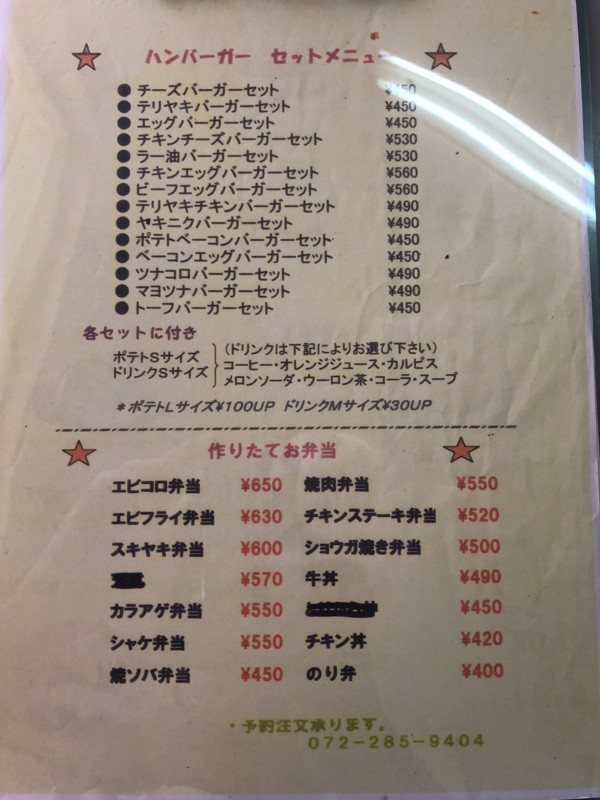 ハンバーガー セットメニュー
● チーズバーガーセット ¥450
● テリヤキバーガーセット ¥450
● エッグバーガーセット ¥450
● チキンチーズバーガーセット ¥530
● ラー油バーガーセット ¥530
● チキンエッグバーガーセット ¥560
● ビーフエッグバーガーセット ¥560
● テリヤキチキンバーガーセット ¥490
● ヤキニクバーガーセット ¥490
● ポテトベーコンバーガーセット ¥450
● ベーコンエッグバーガーセット ¥450
● ツナコロバーガーセット ¥490
● マヨツナバーガーセット ¥490
● トーフバーガーセット ¥450
各セットに付き
ポテトSサイズ
ドリンクSサイズ
(ドリンクは下記によりお選び下さい)
コーヒー・オレンジジュース・カルピス
メロンソーダ・ウーロン茶・コーラ・スープ
*ポテトLサイズ¥100UP ドリンクMサイズ¥30UP
作りたてお弁当
エビコロ弁当 ¥650 焼肉弁当 ¥550
エビフライ弁当 ¥630 チキンステーキ弁当 ¥520
スキヤキ弁当 ¥600 ショウガ焼き弁当 ¥500
¥570 牛丼 ¥490
カラアゲ弁当 ¥550 ¥450
シャケ弁当 ¥550 チキン丼 ¥420
焼ソバ弁当 ¥450 のり弁 ¥400
・予約注文承ります。
072-285-9404